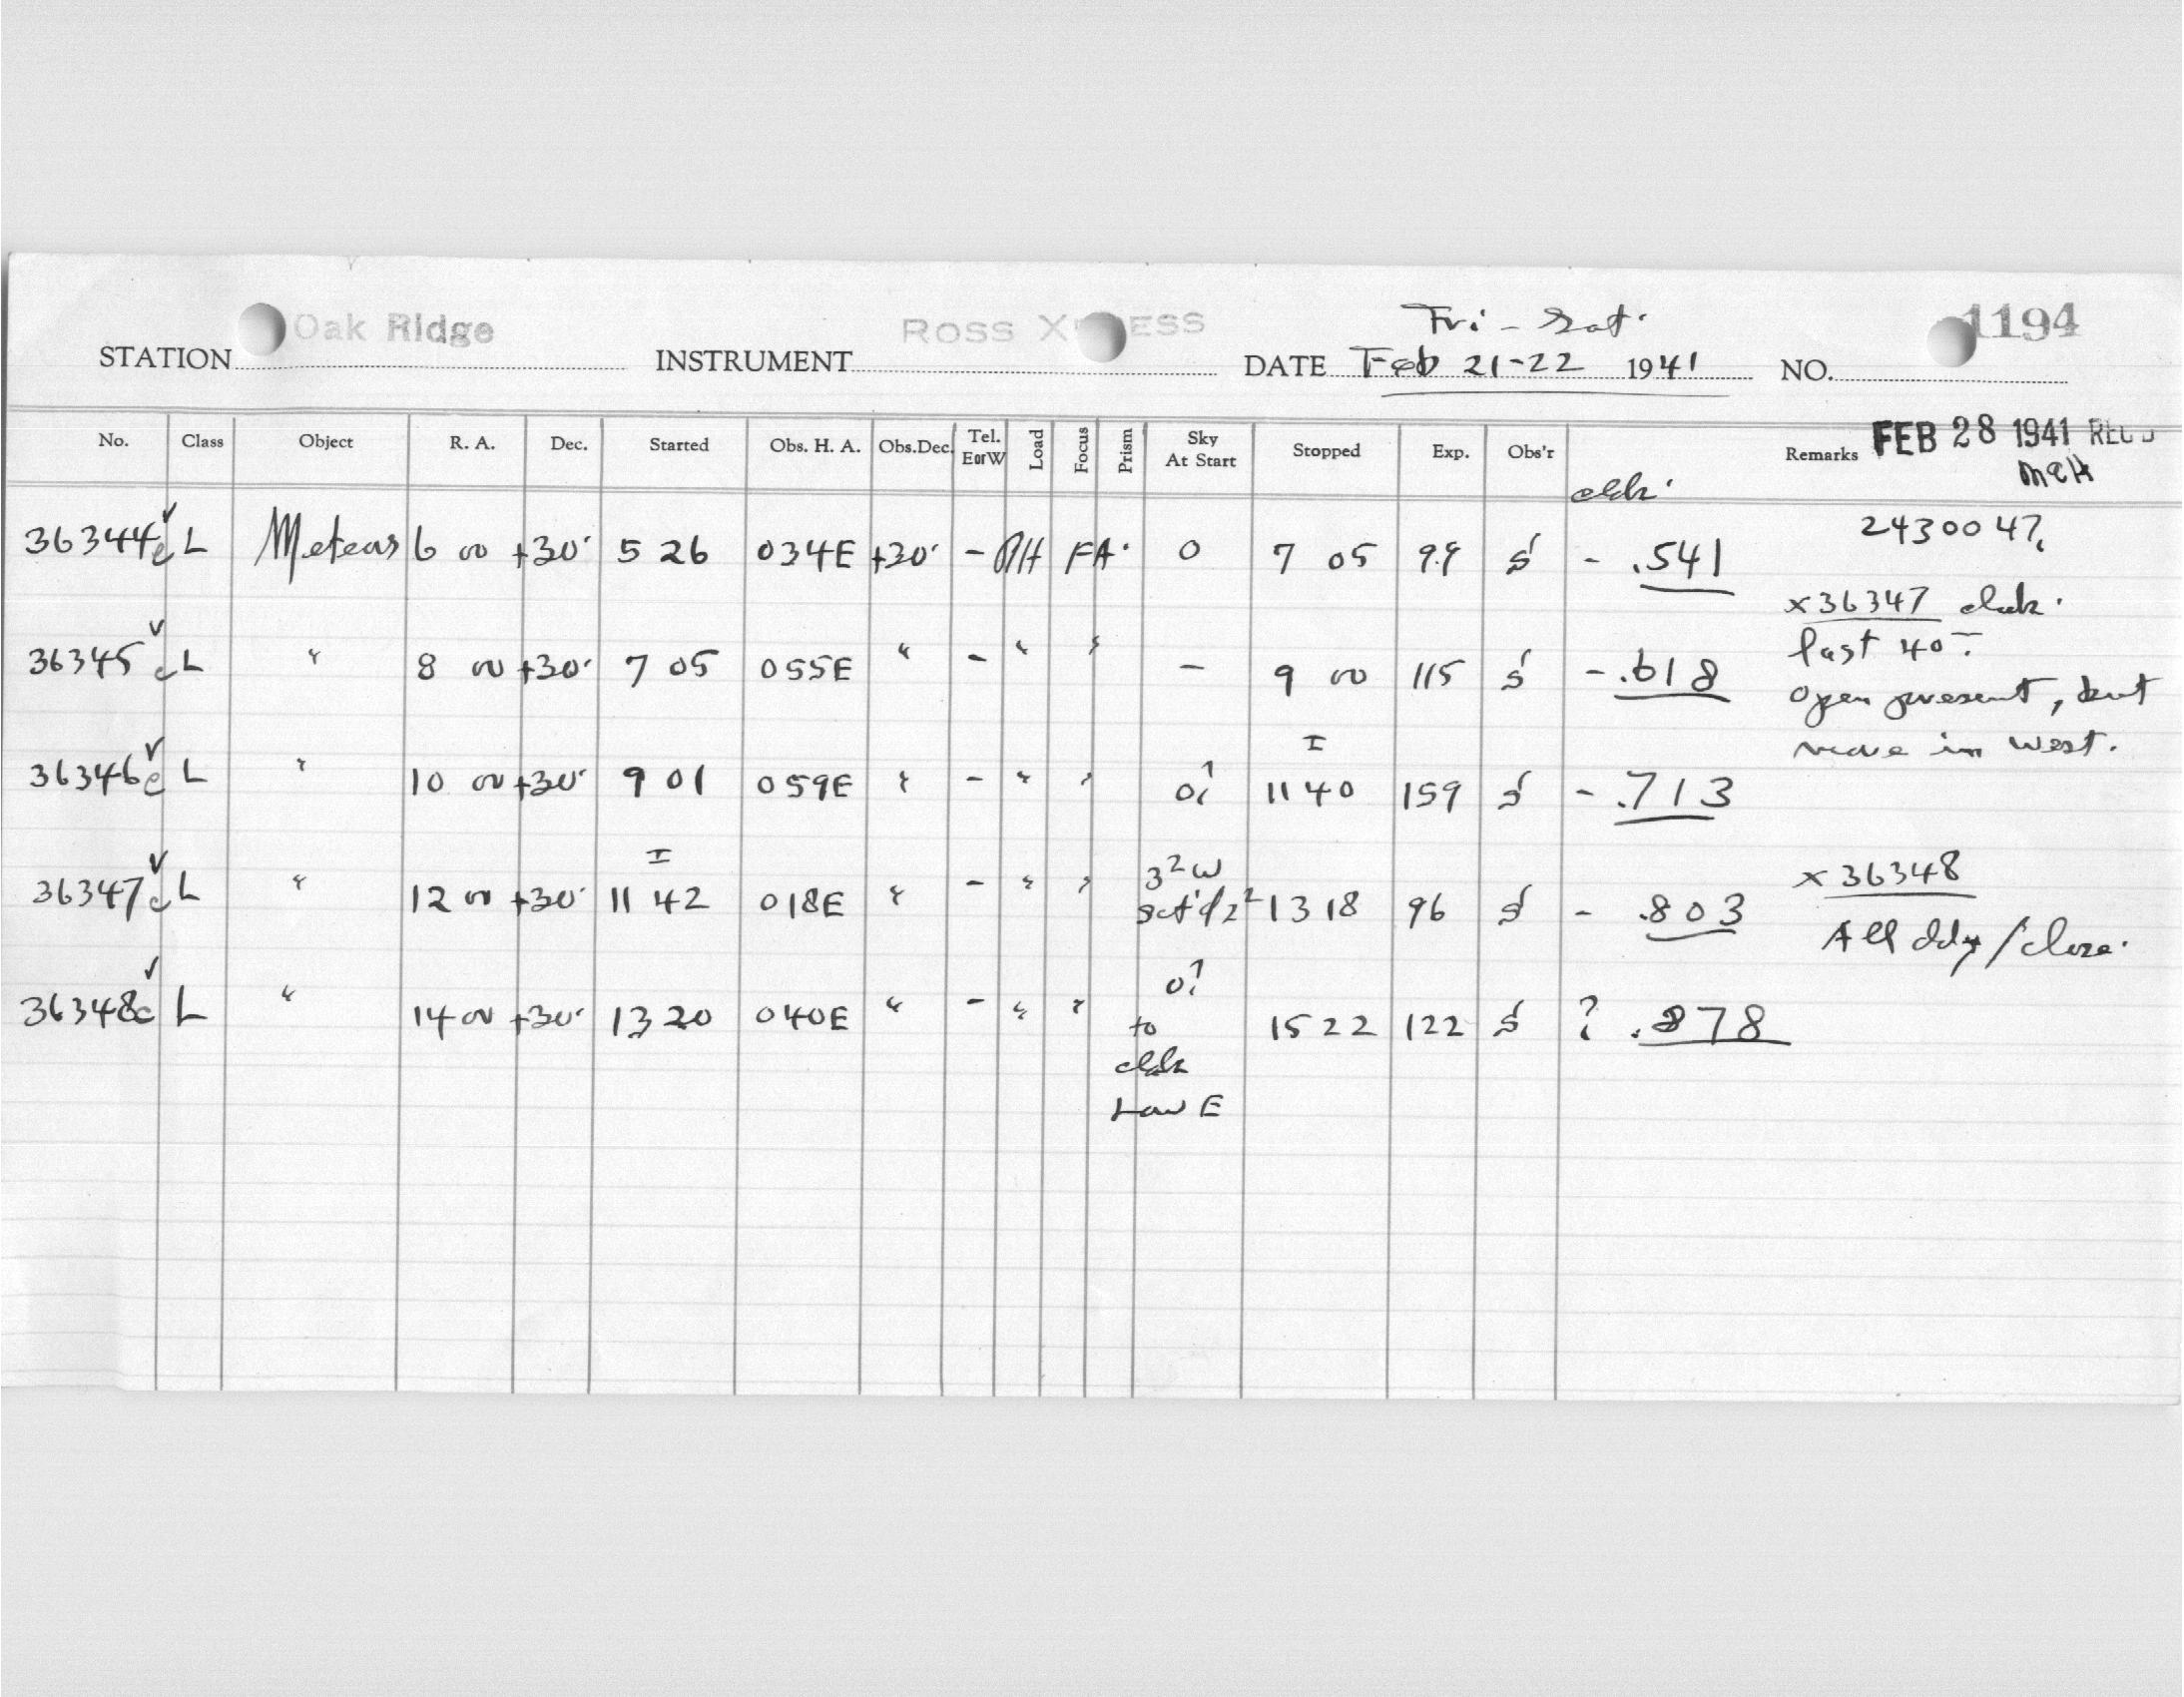 Fri - Sat.
Oak Ridge ROSS X ESS 1194
STATION INSTRUMENT DATE Feb 21-22 1941 NO.
No. Class Object R. A. Dec. Started Obs. H. A. Obs.Dec. Tel. E or W Load Focus Prism Sky At Start Stopped Exp. Obs'r Remarks FEB 28 1941 REC'D
McH
36344 c L Meteors 6 00 +30° 5 26 034E +30° - PH FA. 0 7 05 99 S - .541 2430047.
36345 c L " 8 00 +30° 7 05 055E " - " " - 9 00 115 S - .618
x36347
last 40
open present, but
more in west.
36346 c L " 10 00 +30° 9 01 059E " - " " 0? 11 40 159 S - .713
36347 c L " 12 00 +30° 11 42 018E " - " " 3² W sct'd 2² 13 18 96 S - .803
x36348
All / close.
36348 c L " 14 00 +30° 13 20 040E " - " " 0? 15 22 122 S ? .878
to
Low E